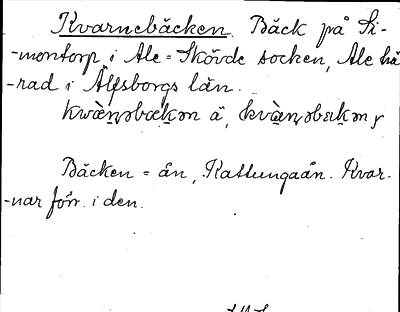 Kvarnebäcken. Bäck på Si-
-montorp i Ale=Skövde socken, Ale hä
-rad i Älfsborgs län.
ä,
Bäcken = ån, Kattungaån. Kvar-
-nar förr i den.